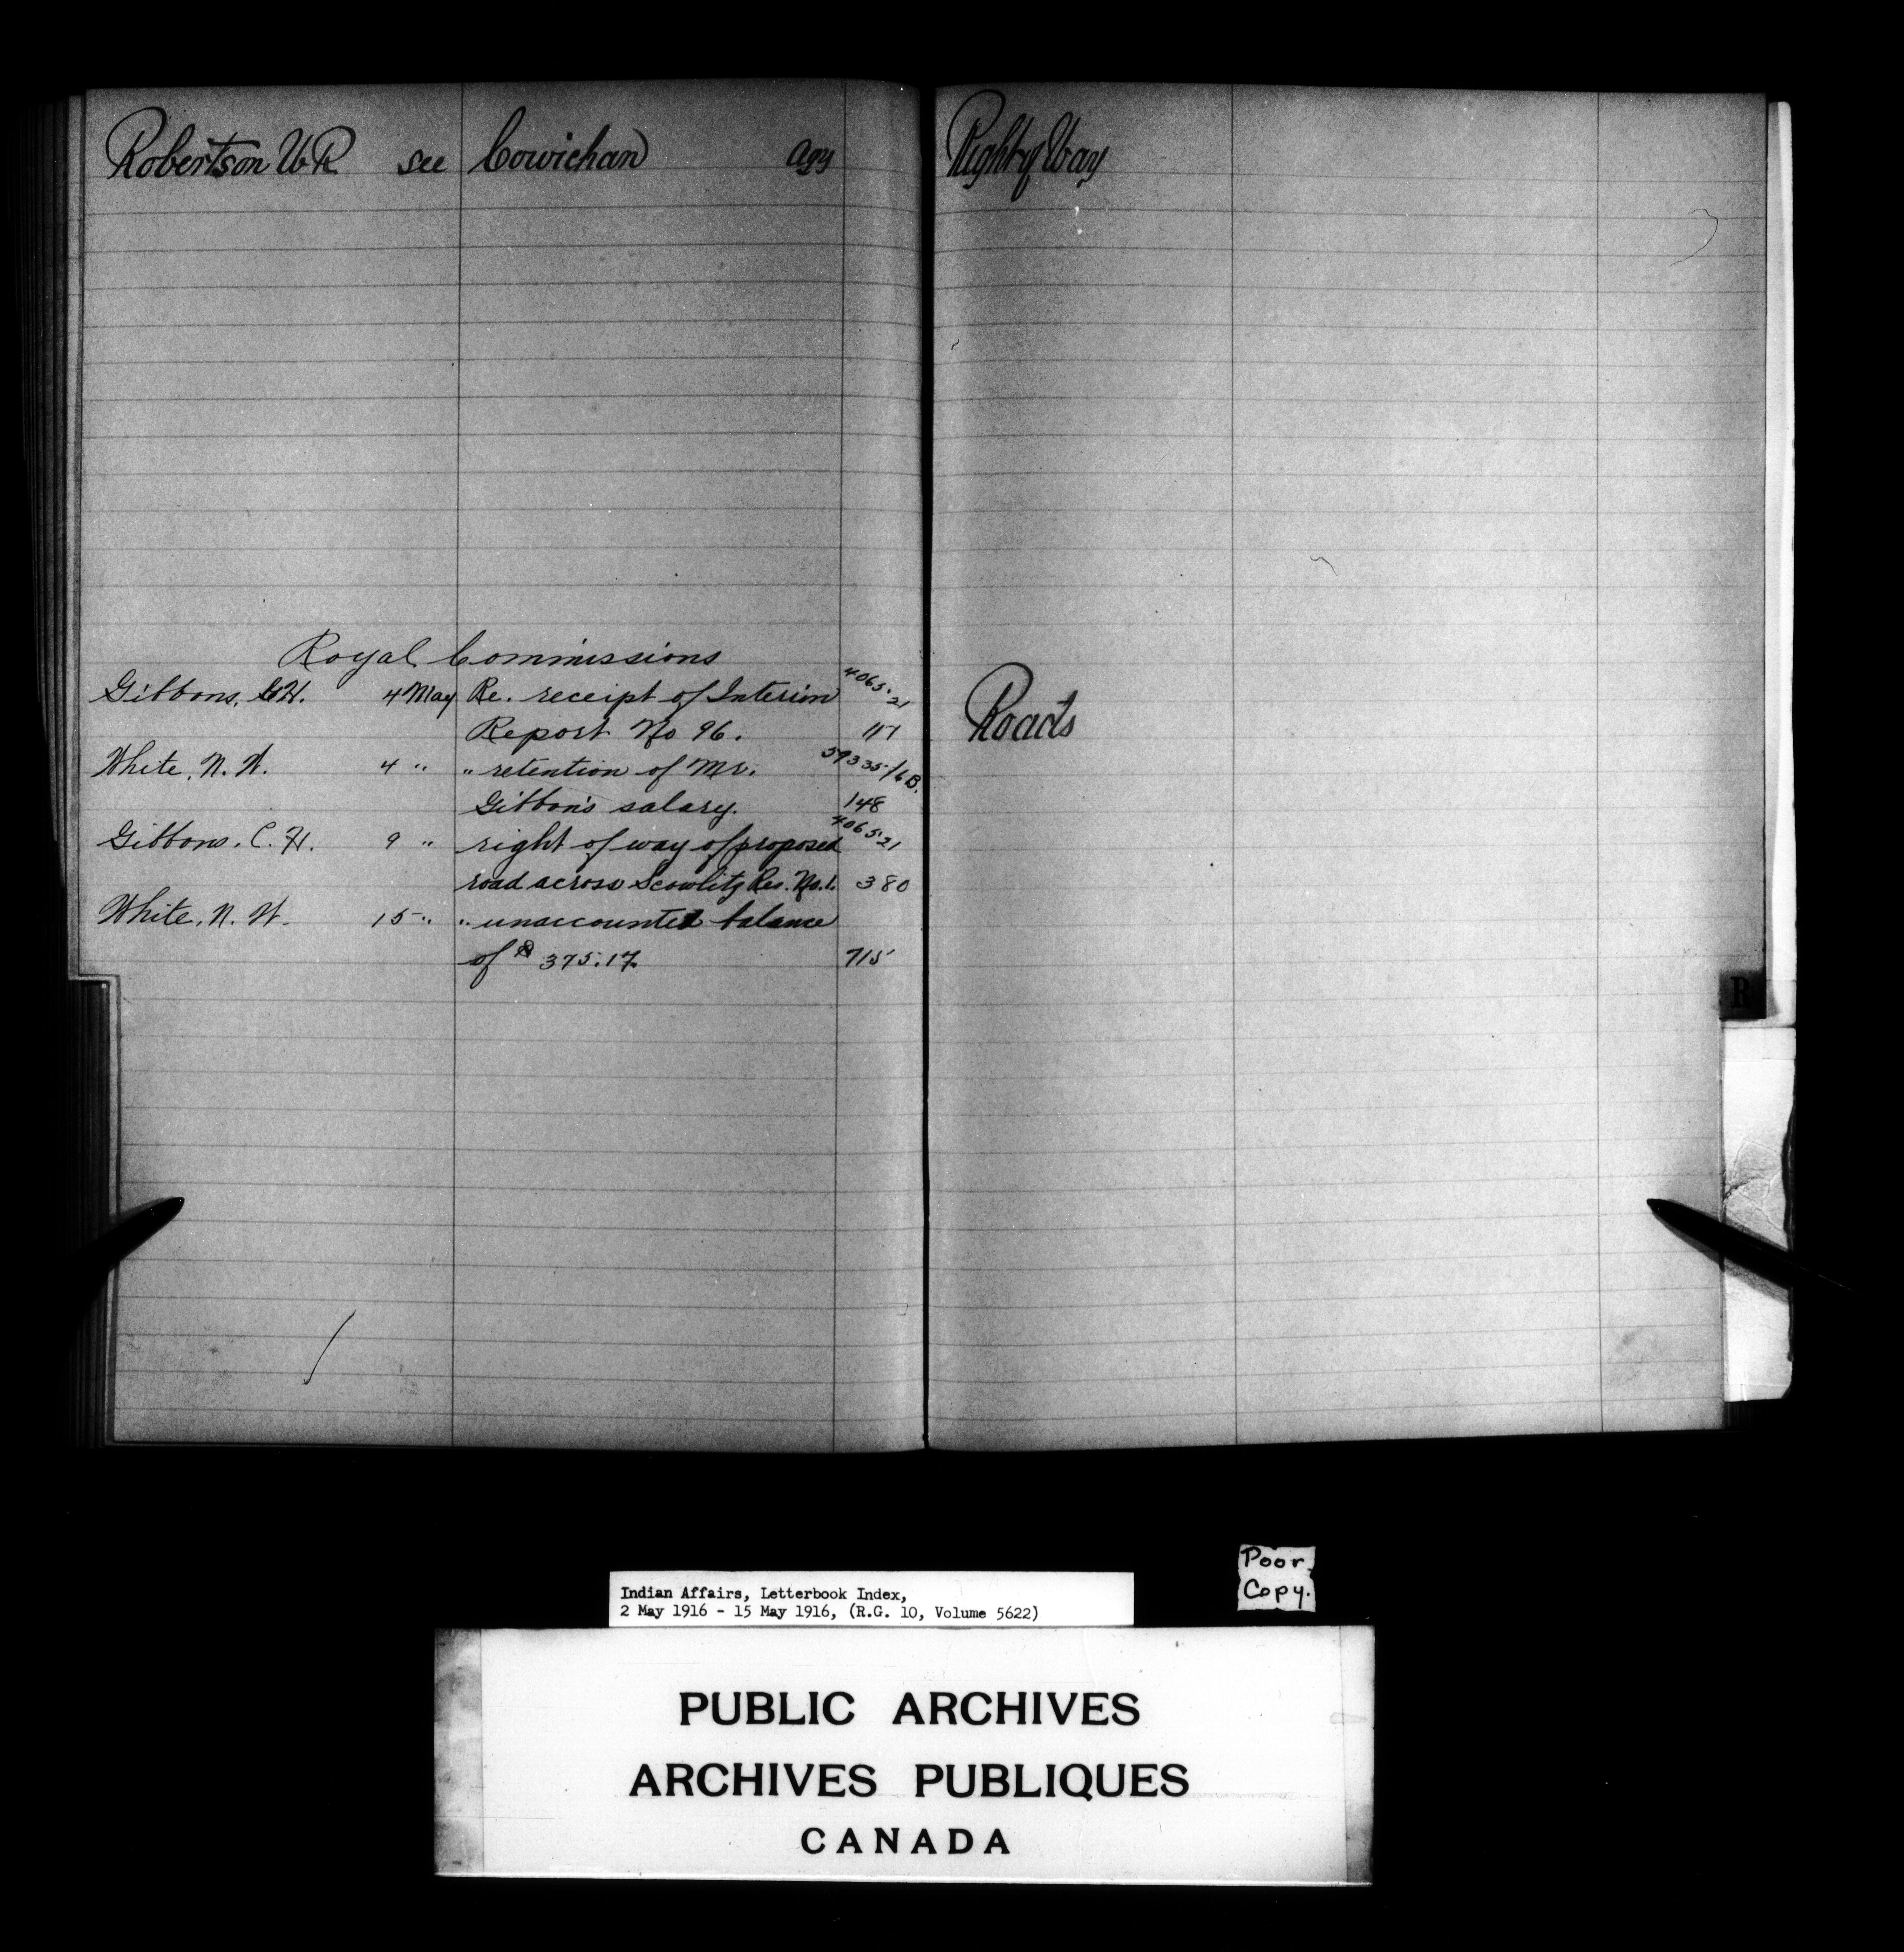 Robertson W R see Cowichan Agy
Royal Commissions
Gibbons, C.H. 4 May Re. receipt of Interim 4065-21
Report No 96. 117
White, N. W. 4 " " retention of Mr. 59335/6B.
Gibbon's salary. 148
Gibbons. C. H. 9 " right of way of proposed 4065-21
road across Scowlitz Res. No.1. 380
White, N. W. 15 " " unaccounted balance
of $ 375.17. 715
Right of Way
Roads
R
Poor
Copy.
Indian Affairs, Letterbook Index,
2 May 1916 - 15 May 1916, (R.G. 10, Volume 5622)
PUBLIC ARCHIVES
ARCHIVES PUBLIQUES
CANADA